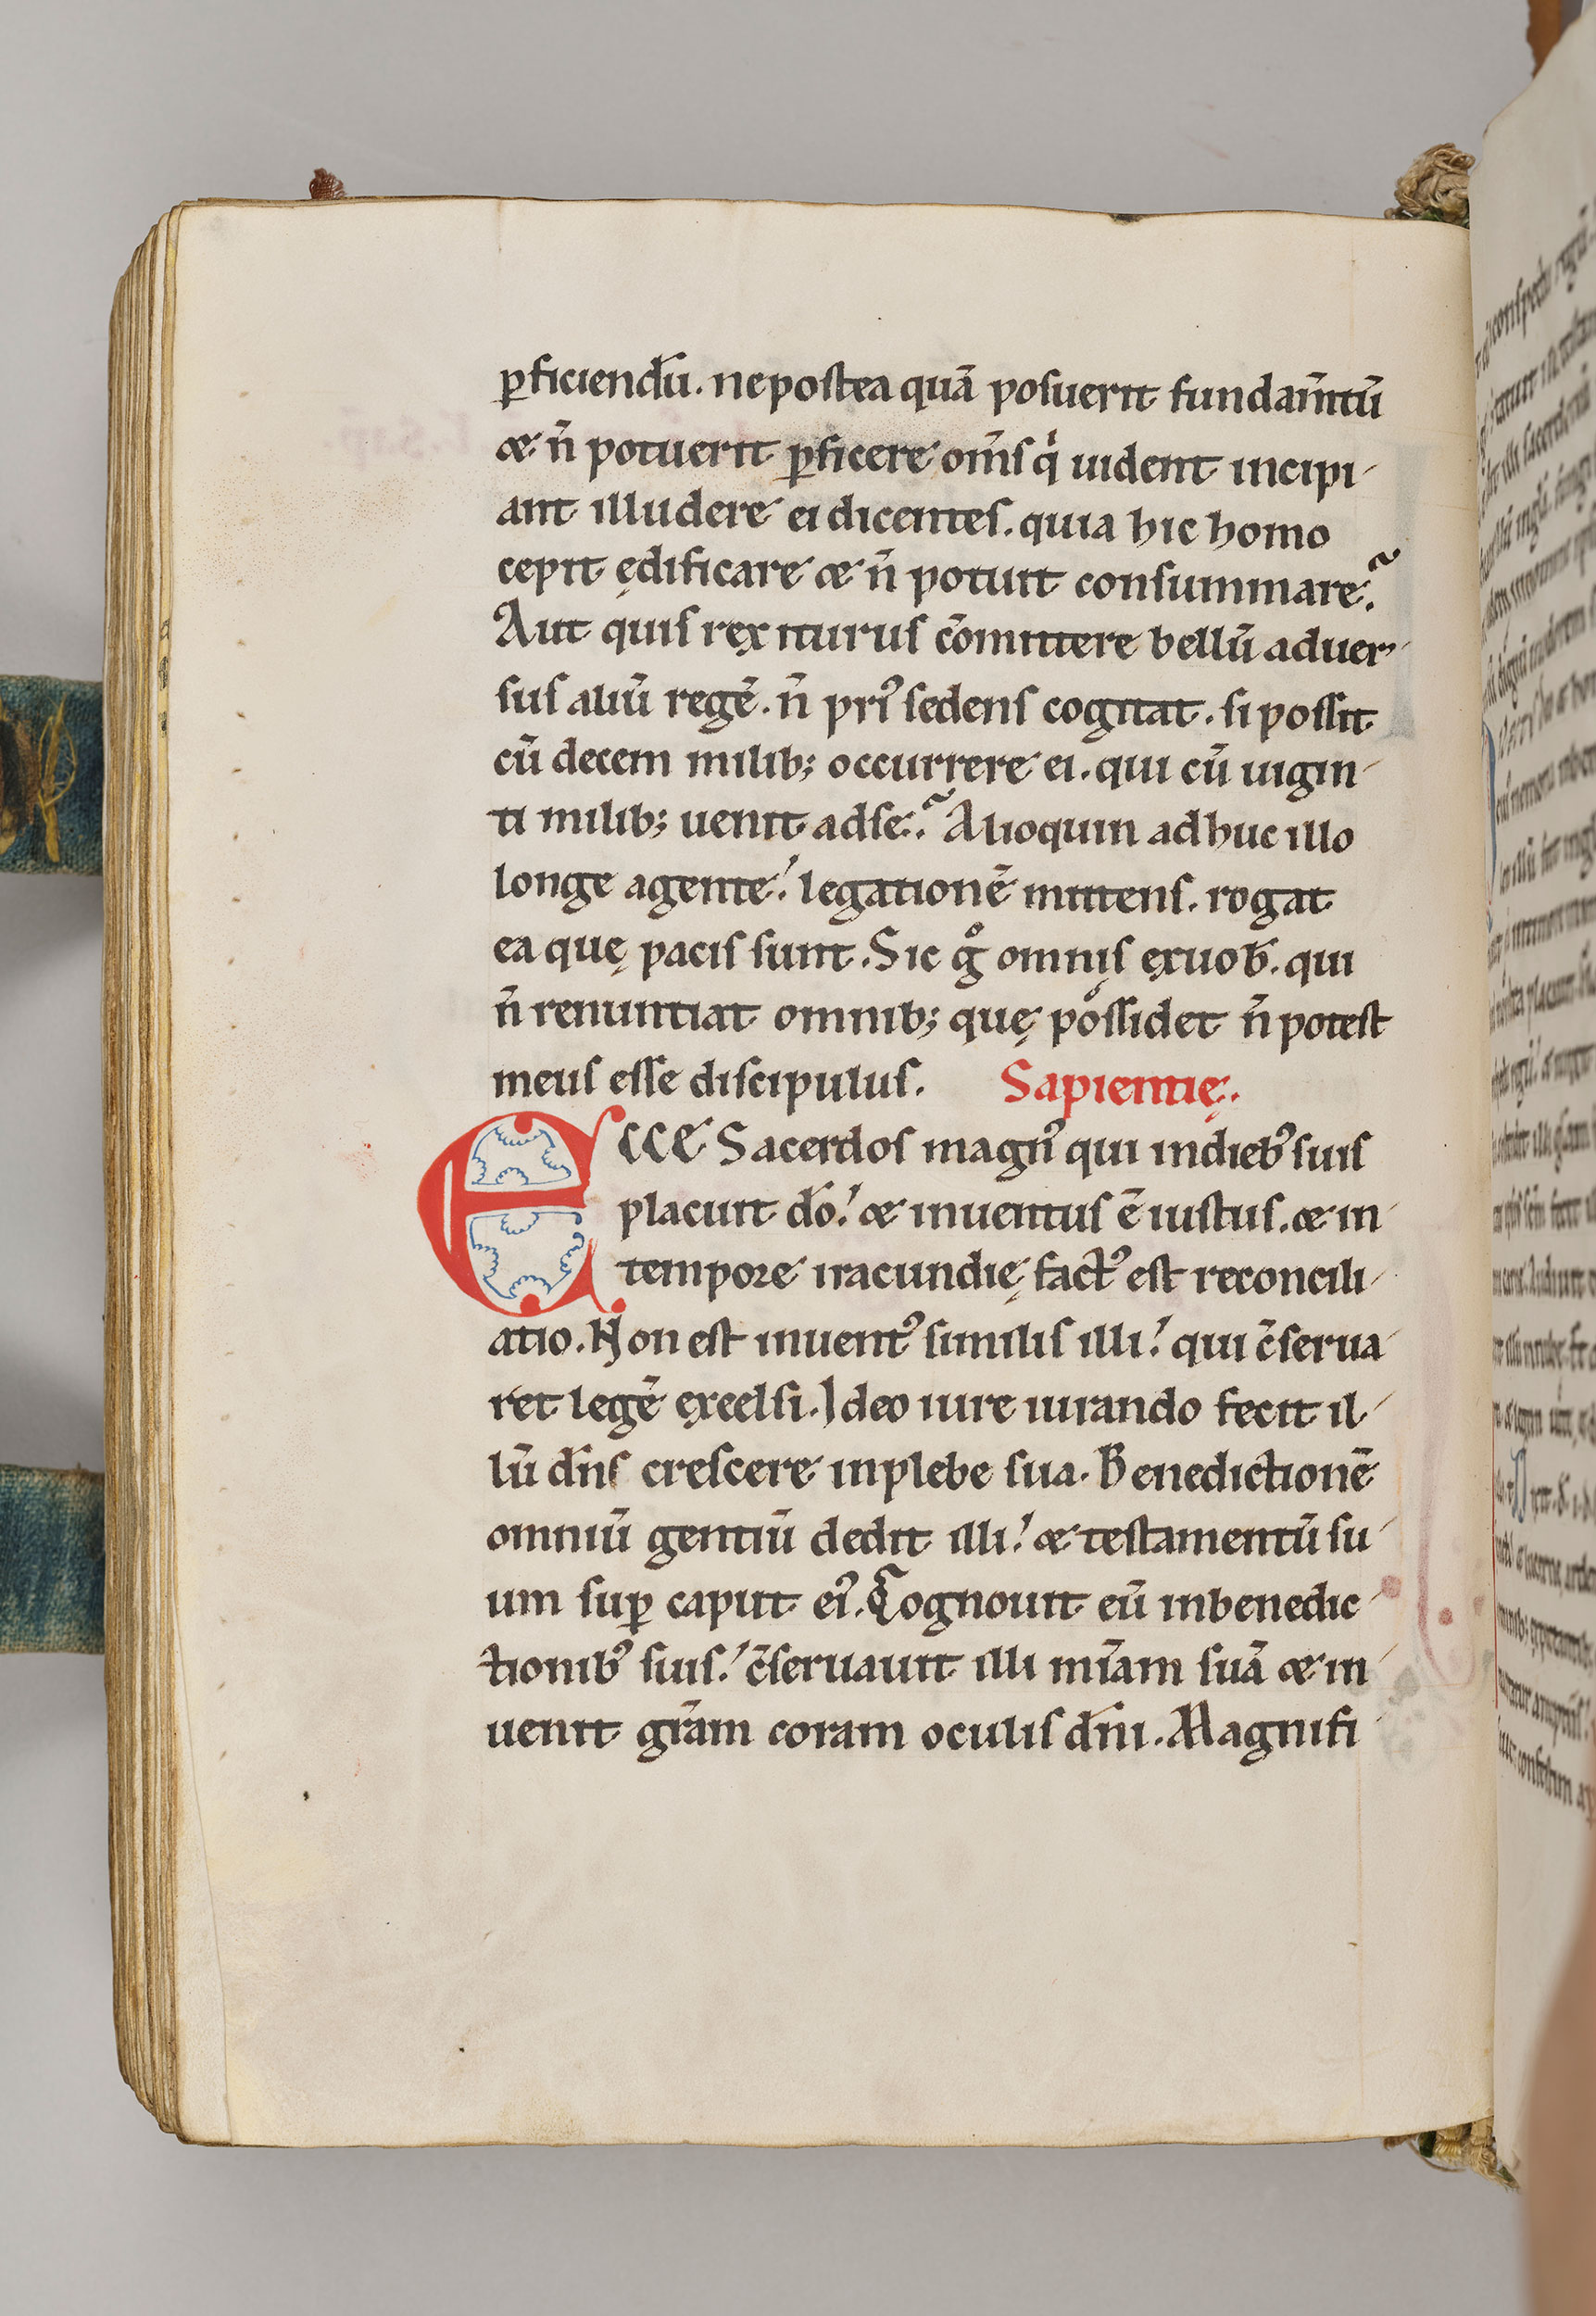 ꝑficiendū. ne postea quā posuerit fundam̄tū
& n̄ potuerit ꝑficere om̄s qⁱ uident incipi-
ant illudere ei dicentes. quia hic homo
cepit ędificare & n̄ potuit consummare?
Aut quis rex iturus cōmittere bellū aduer-
sus aliū regē. n̄ priꝰ sedens cogitat. si possit
cū decem milib; occurrere ei. qui cū uigin-
ti milib; uenit ad se? Alioquin adhuc illo
longe agente! legationē mittens. rogat
ea quę pacis sunt. Sic gͦ omnis ex uob̄. qui
n̄ renuntiat omnib; quę possidet n̄ potest
meus esse discipulus. Sapientię.
ECCE Sacerdos magnꝰ qui in diebꝰ suis
placuit dō! & inuentus ē iustus. & in
tempore iracundię factꝰ est reconcili-
atio. Non est inuentꝰ similis illi! qui c̄serua-
ret legē excelsi. Ideo iure iurando fecit il-
lū dn̄s crescere in plebe sua. Benedictionē
omniū gentiū dedit illi! & testamentū su-
um suꝑ caput eiꝰ. Cognouit eū in benedic-
tionibꝰ suis! c̄seruauit illi mīam suā & in-
uenit grām coram oculis dn̄i. Magnifi-